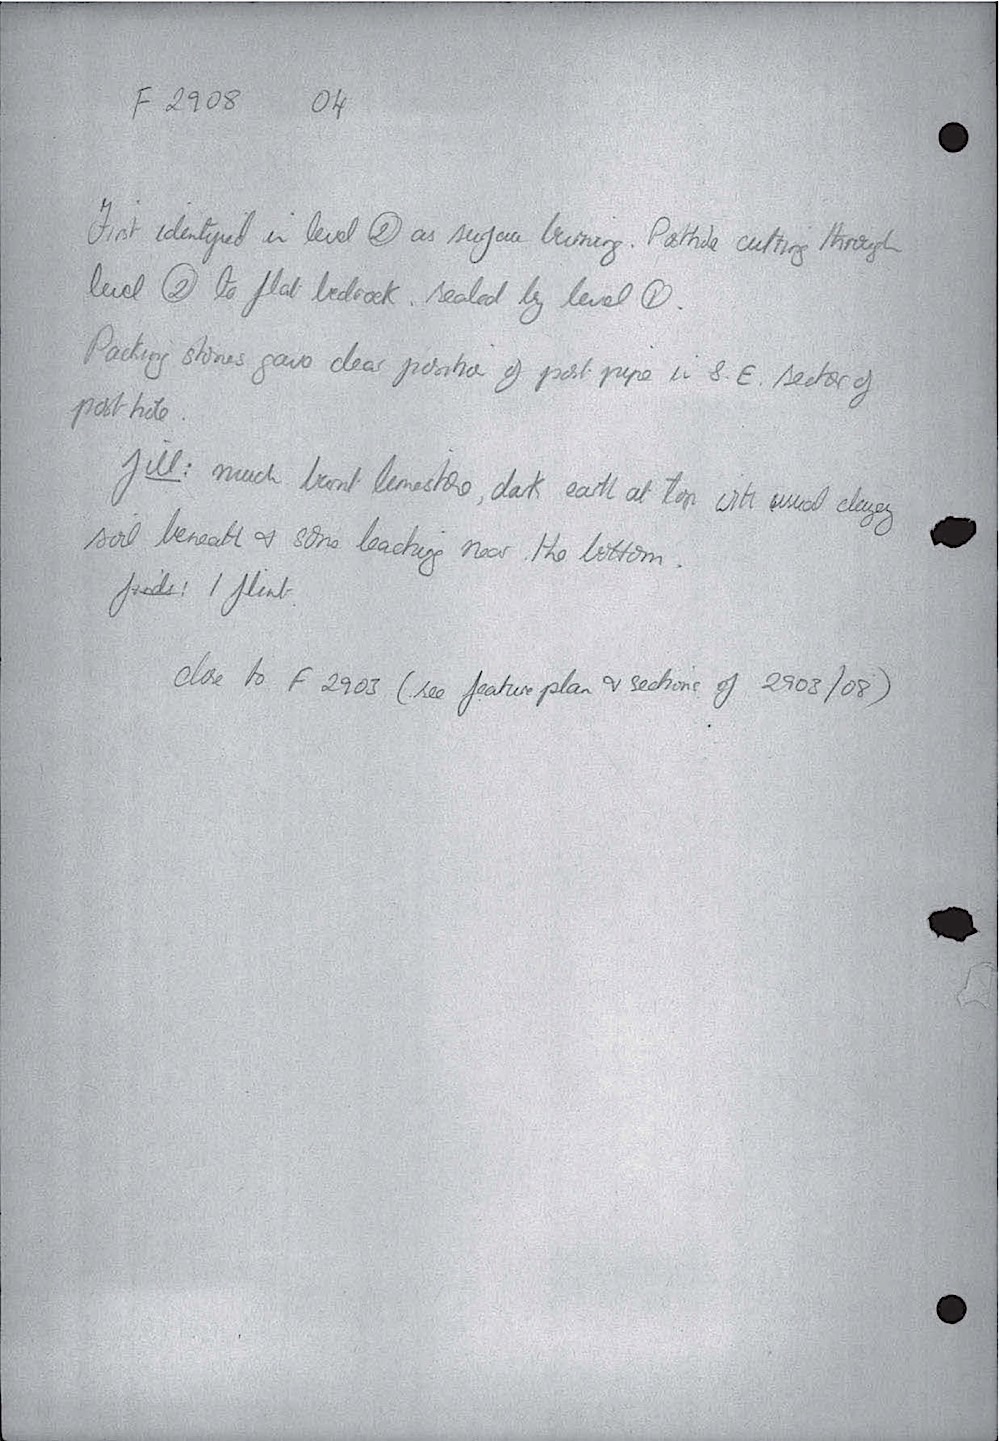 F 2908 04
First identified in level ② as surface burning. Posthole cutting through
level ② to flat bedrock. Sealed by level ①.
Packing stones gave clear position of post pipe in S.E. sector of
post hole.
fill: much burnt limestone, dark earth at top with usual clayey
soil beneath & some leaching near the bottom.
finds: 1 flint.
close to F 2903 (see feature plan & sections of 2903/08)